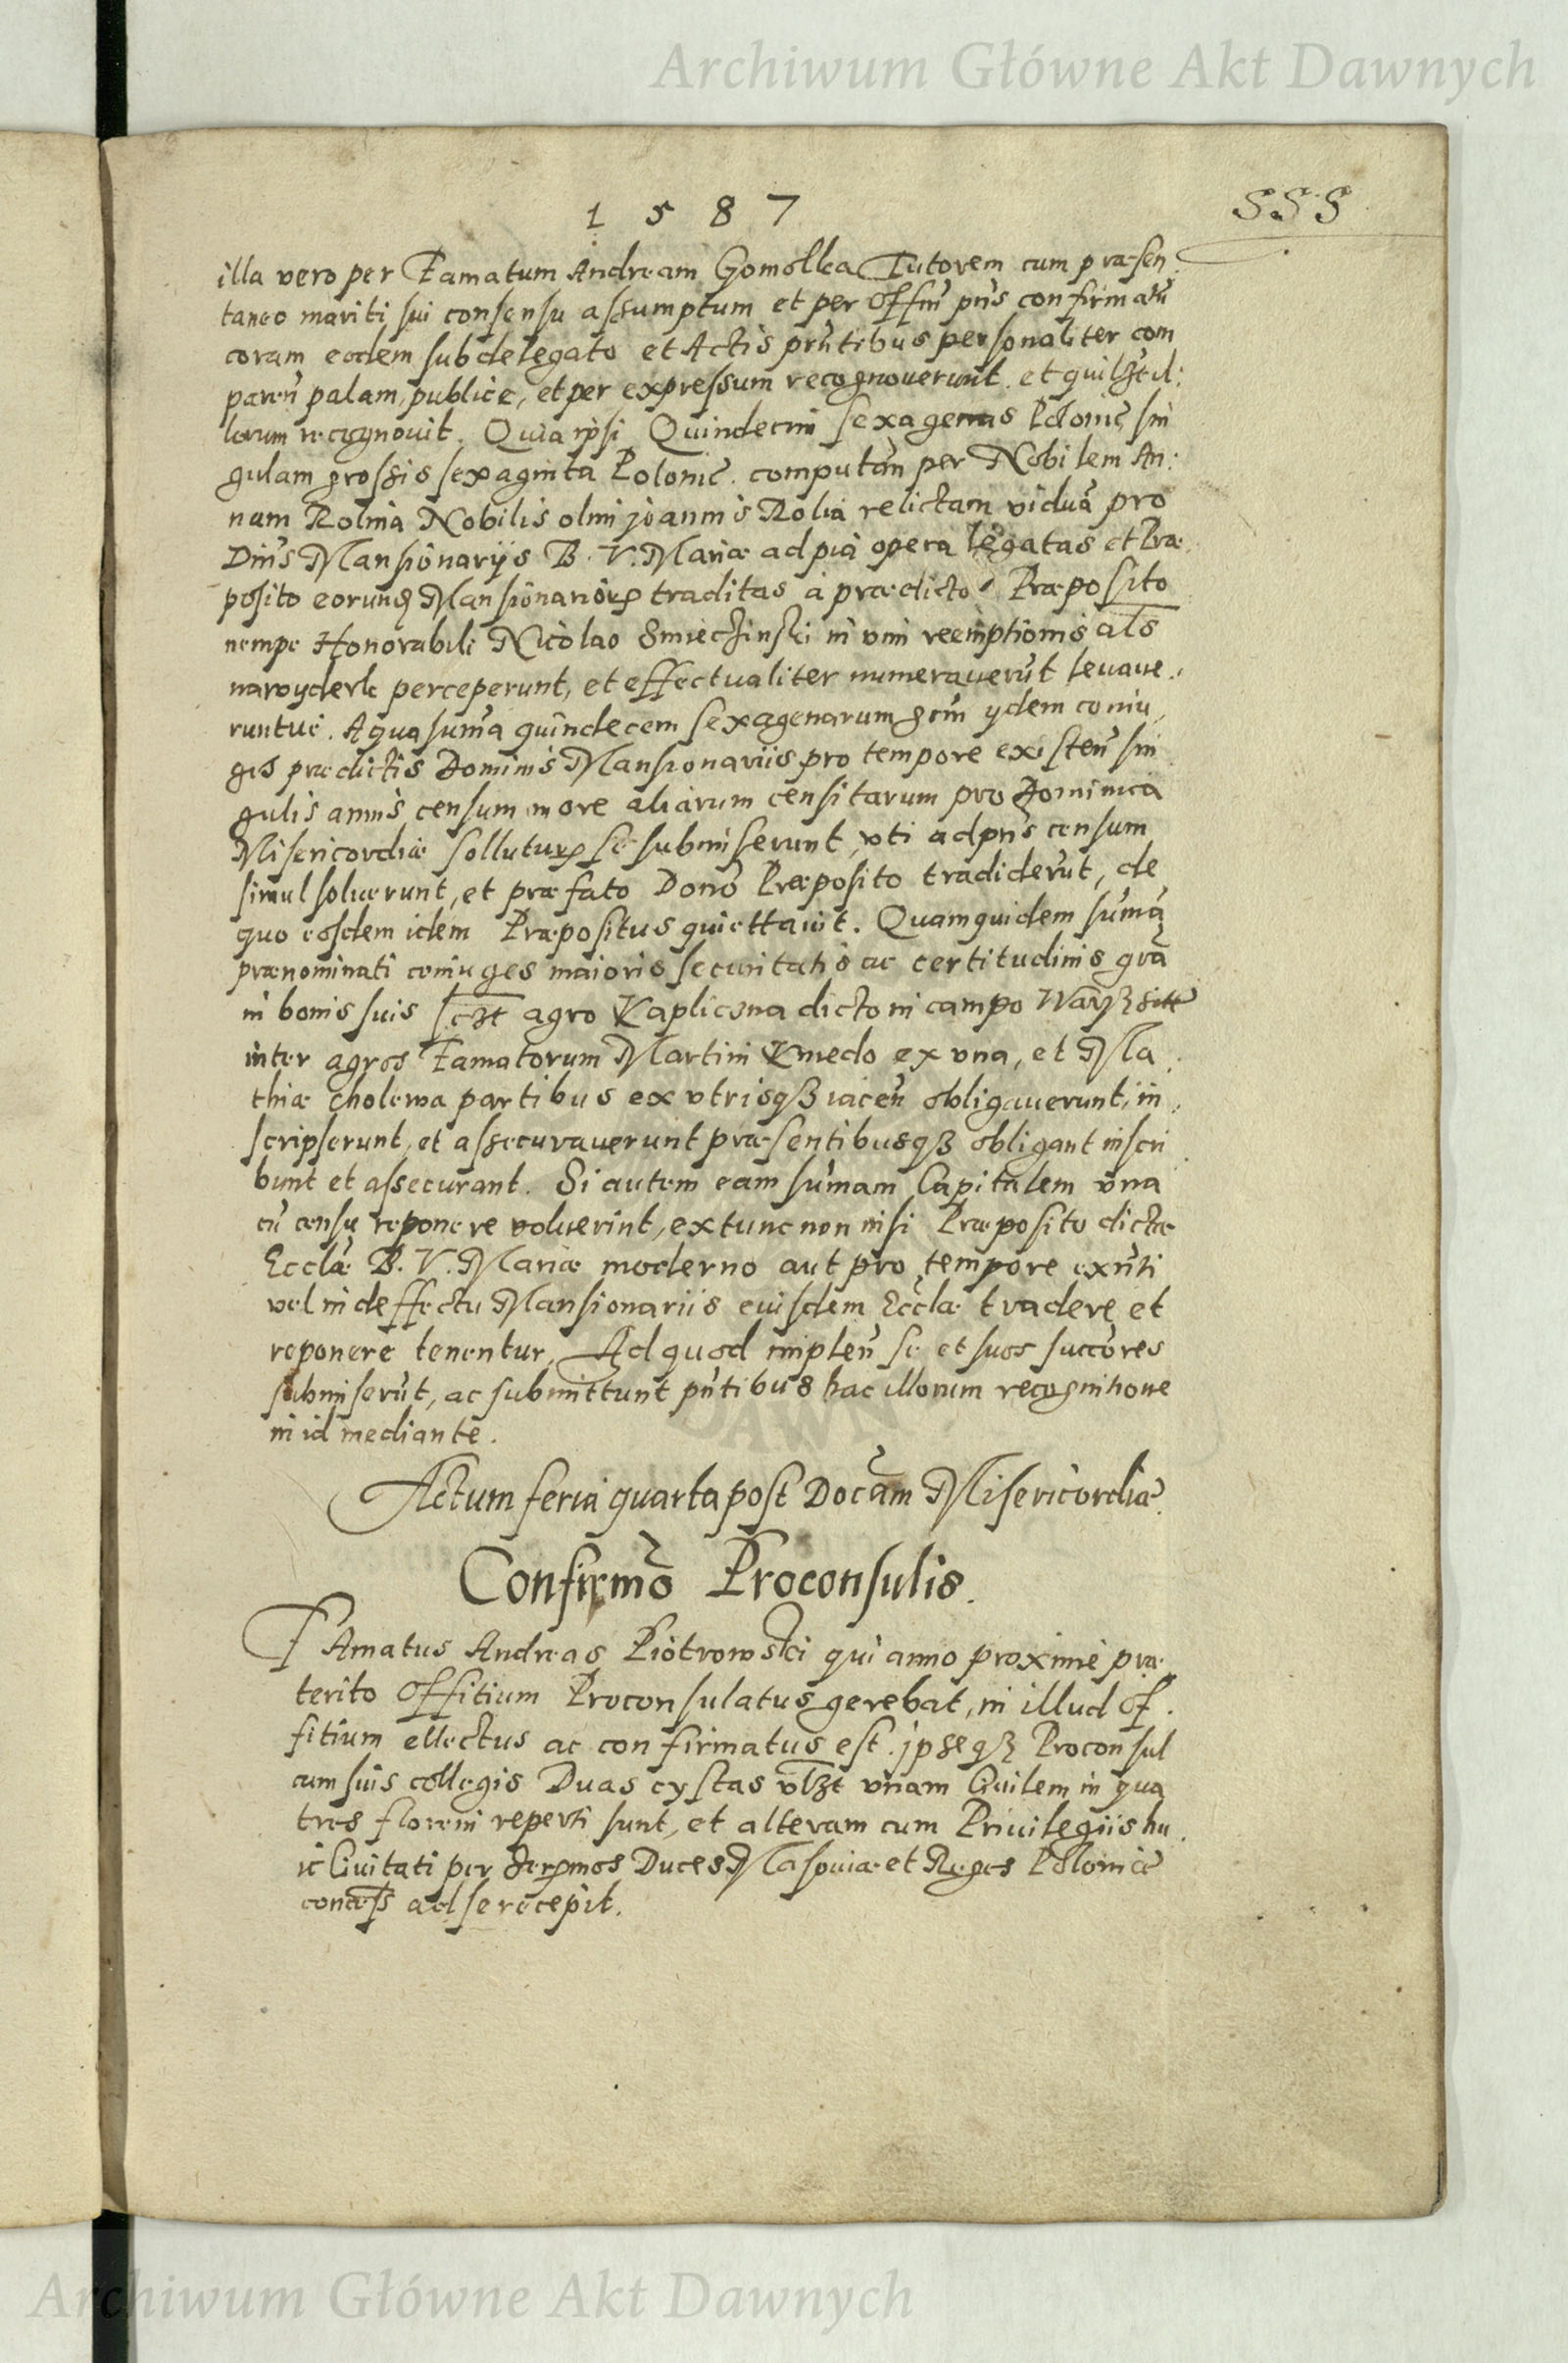 Archiwum Główne Akt Dawnych
1 5 8 7
555
illa vero per Famatum Andream Gomolka Tutorem cum præsen
taneo mariti sui consensu assumptum et per offm̃ pñs confirmatũ
coram eodem subdelegato et Actis prñtibus personaliter com
pareñ palam, publice, et per expressum recognoverunt. et quilꝫet il:
lorum recognovit. Quia ipsi Quindecim sexagenas Polonic̃ sin
gulam grossis sexaginta Polonic̃. computañ per Nobilem An:
nam Rolina Nobilis olim joannis Rolia relictam viduã pro
Dnĩs Mansionarijs B. V. Mariæ ad pia opera legatas et Præ
posito eorund Mansionariorꝝ traditas à prædicto Præposito
nempe Honorabili Nicolao Smieczinski in vim reemptionis als̃
nawyderk perceperunt, et effectualiter numeraverũt levave.
runtue. A qua sum̃a quindecem sexagenarum grm̃ ydem coniu,
ges prædictis Dominis Mansionariis pro tempore existeñ sin
gulis annis censum more aliarum censitarum pro Dominica
Misericordiæ solluturꝝ se submiserunt, vti ad pñs censum
simul solverunt, et præfato Dono͂ Præposito tradiderũt, de
quo eosdem idem Præpositus quiettavit. Quam quidem sum̃ã
prænominati coniuges maioris securitatis ac certitudinis grã
in bonis suis scꝫt agro Kapliczna dicto in campo
inter agros Famatorum Martini Kmedo ex vna, et Ma
thiæ Cholewa partibus ex vtrisqꝫ iaceñ obligaverunt, in
scripserunt, et assecuraverunt præsentibusqꝫ obligant inscri
bunt et assecurant. Si autem eam sum̃am Capitalem vna
cũ censu reponere voluerint, extunc non nisi Præposito dictæ
Ecclæ̃ B. V. Mariæ moderno aut pro tempore exñti
vel in deffectu Mansionariis eiusdem Ecclæ̃ tradere et
reponere tenentur, Ad quod impleñ se et suos succo͂res
submiserũt, ac submittunt pñtibus hac illorum recognitione
in id mediante.
Actum feria quarta post Docãm Misericordiæ.
Confirmõ Proconsulis.
FAmatus Andreas Piotrowski qui anno proxime præ
terito Offitium Proconsulatus gerebat, in illud of.
fitium ellectus ac confirmatus est. jpseqꝫ Proconsul
cum suis collegis Duas cystas vlꝫt vnam Civilem in qua
tres floreni reperti sunt, et alteram cum Privilegiis hu
ic Civitati per Duces Masoviæ et Reges Poloniæ
concess̃ ad se recepit.
Archiwum Główne Akt Dawnych